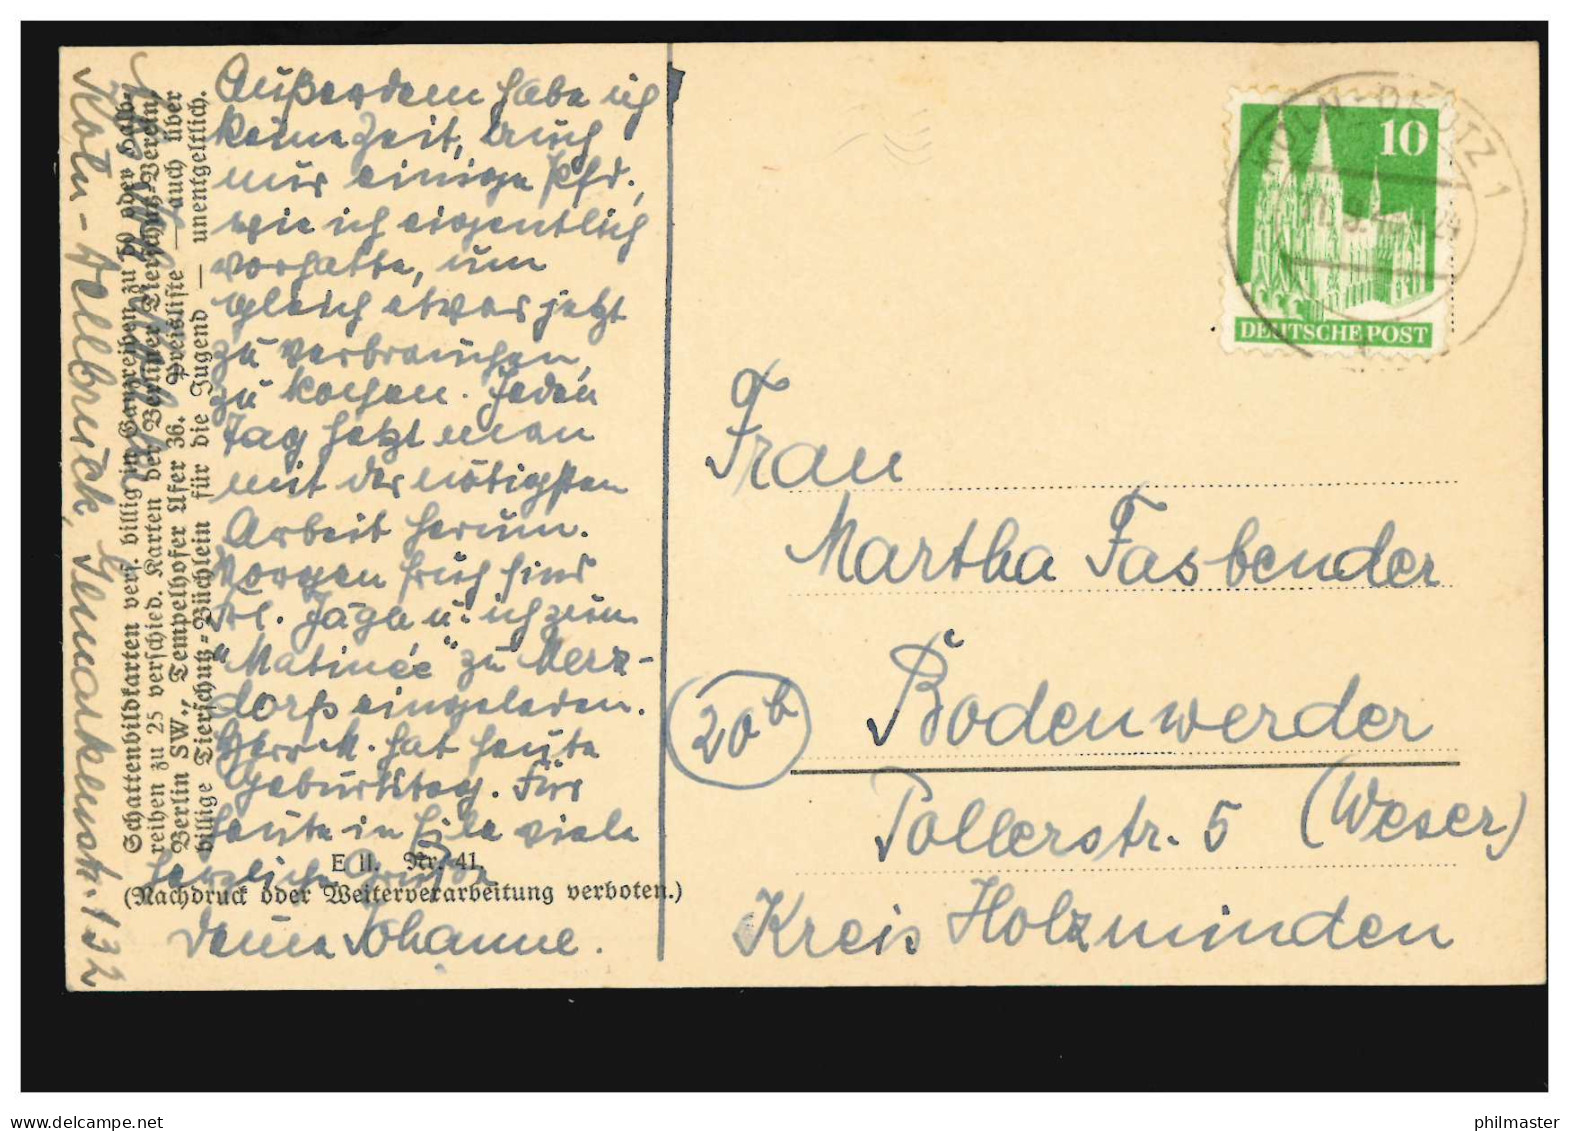 Außerdem habe ich
keine Zeit, auch
nur einige Pfd.,
wie ich eigentlich
vorhatte, um
gleich etwas jetzt
zu verbrauchen,
zu kochen. Jeden
Tag hetzt man
mit der nötigsten
Arbeit herum.
Morgen früh sind
Frl. Jägle u. ich zum
"Matinée" zu Merz-
dorfs eingeladen.
Herr M. hat heute
Geburtstag. Für
heute in Eile viele
herzliche Grüße
Deine Johanne.
Köln-Dellbrück, 132
Schattenbildkarten versch. billig in Ganzreihen zu 50 oder Halb-
reihen zu 25 verschied. Karten der Berliner Tierschutz-Verein,
Berlin SW., Tempelhofer Ufer 36. Preisliste — auch über
billige Tierschutz-Büchlein für die Jugend — unentgeltlich.
E II. Nr. 41.
(Nachdruck oder Weiterverarbeitung verboten.)
10
DEUTSCHE POST
KÖLN-DEUTZ 1
Frau
Martha Fasbender
20b
Bodenwerder
Pollerstr. 5 (Weser)
Kreis Holzminden
www.delcampe.net
philmaster